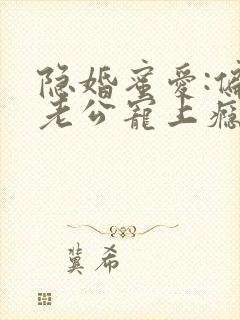 隐婚蜜爱:偏
老公宠上瘾
冀希